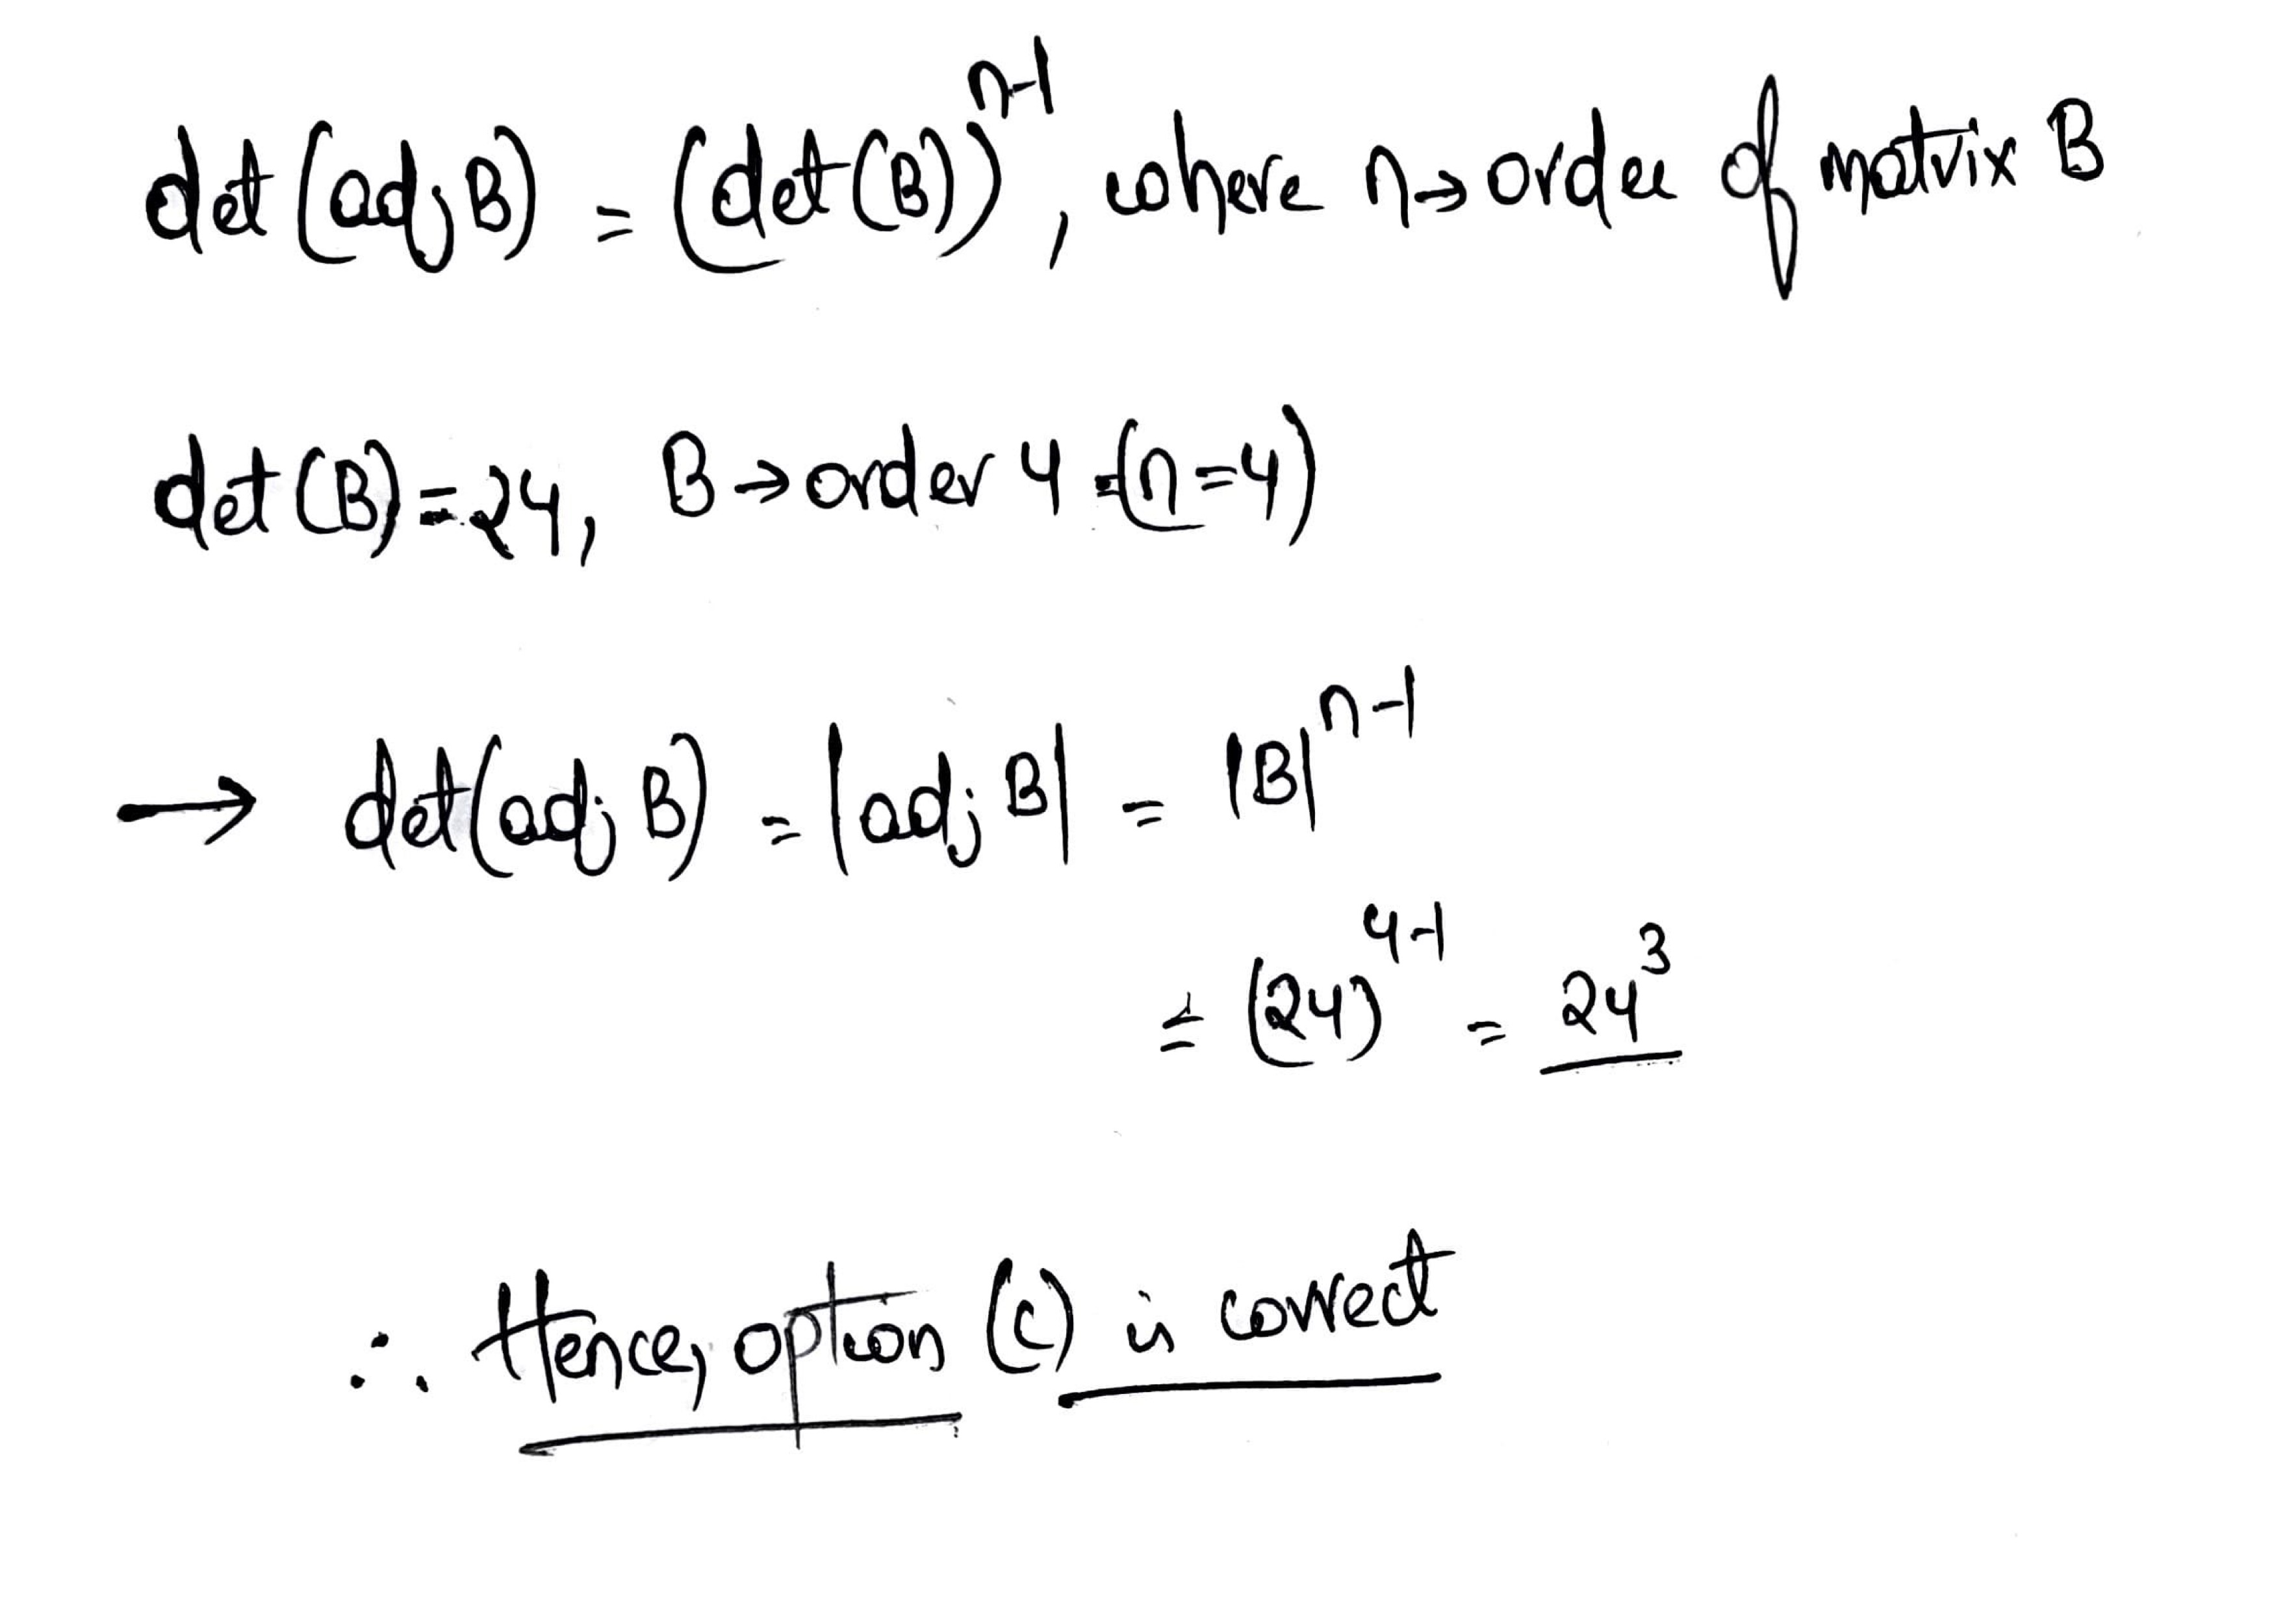 det (adj B) = (det (B))^{n-1}, where n → order of matrix B
det (B) = 24, B → order 4 (n=4)
→ det(adj B) = |adj B| = |B|^{n-1}
= (24)^{4-1} = 24^3
∴ Hence, option (c) is correct